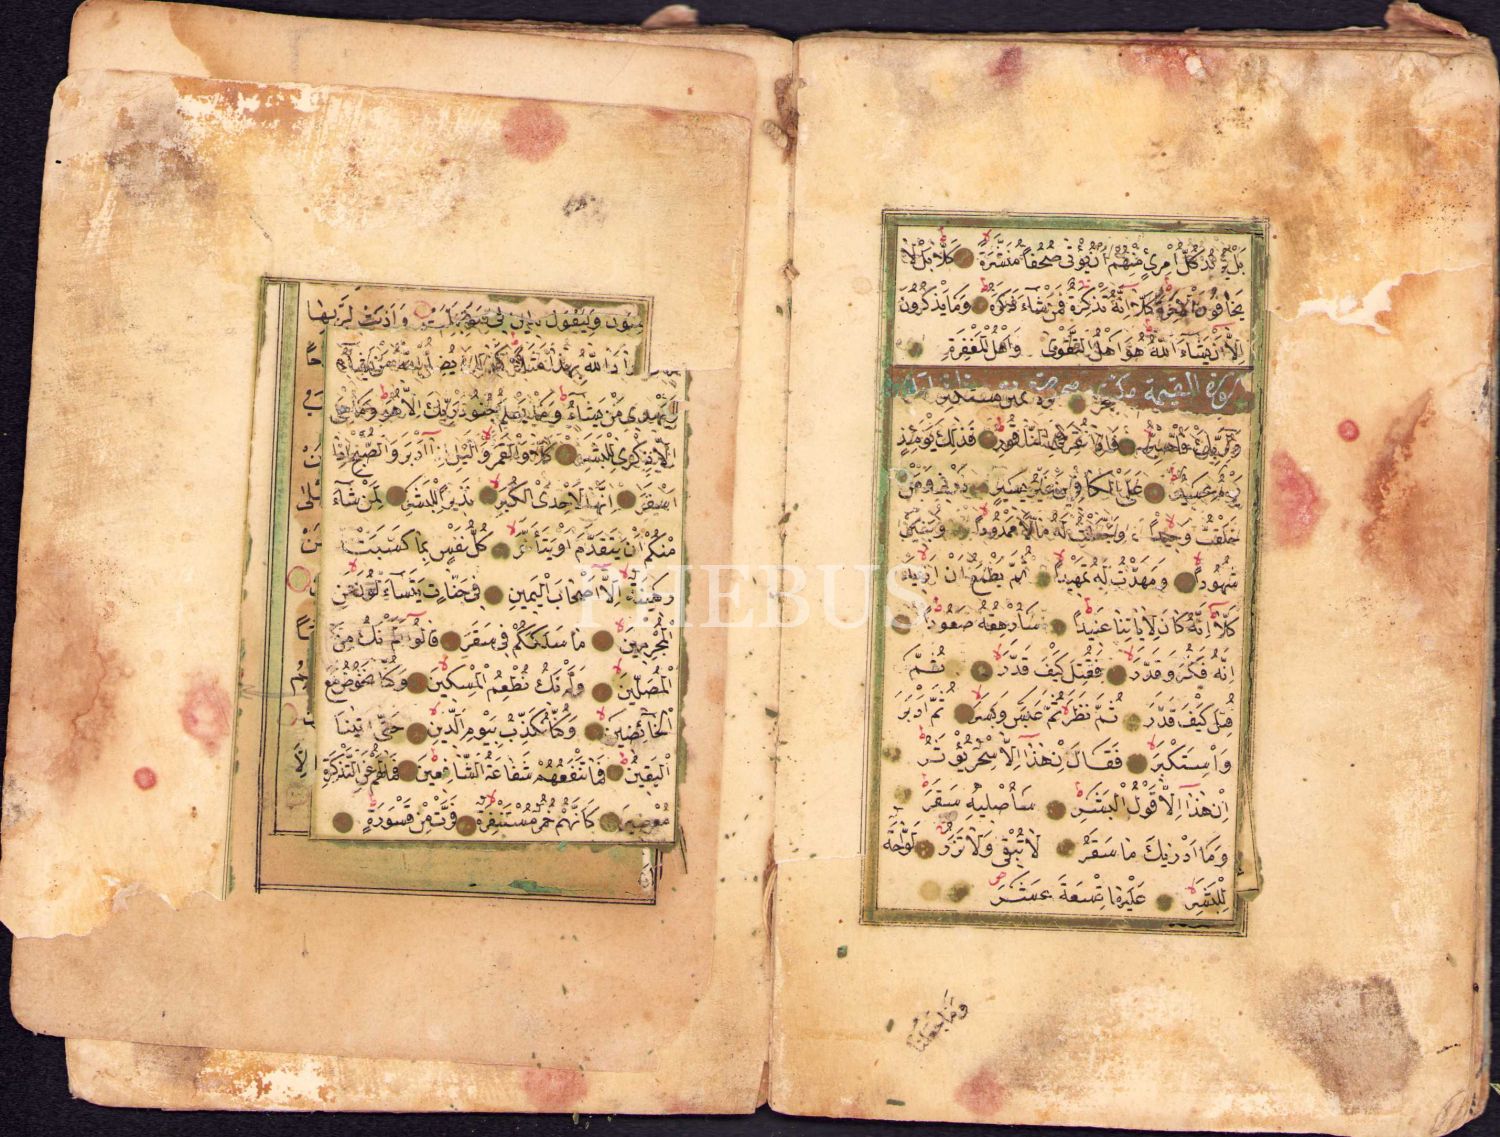 بَلْ يُرِيدُ كُلُّ امْرِئٍ مِنْهُمْ اَنْ يُؤْتٰى صُحُفًا مُنَشَّرَةً كَلَّا بَلْ لَا
يَخَافُونَ الْاٰخِرَةَ كَلَّا اِنَّهُ تَذْكِرَةٌ فَمَنْ شَاءَ ذَكَرَهُ وَمَا يَذْكُرُونَ
اِلَّا اَنْ يَشَاءَ اللّٰهُ هُوَ اَهْلُ التَّقْوٰى وَاَهْلُ الْمَغْفِرَةِ
سورة القيمة مكية
تمنن تستكثر
وَلِرَبِّكَ فَاصْبِرْ فَاِذَا نُقِرَ فِى النَّاقُورِ فَذٰلِكَ يَوْمَئِذٍ
يَوْمٌ عَسِيرٌ عَلَى الْكَافِرِينَ غَيْرُ يَسِيرٍ ذَرْنِى وَمَنْ
خَلَقْتُ وَحِيدًا وَجَعَلْتُ لَهُ مَالًا مَمْدُودًا وَبَنِينَ
شُهُودًا وَمَهَّدْتُ لَهُ تَمْهِيدًا ثُمَّ يَطْمَعُ اَنْ اَزِيدَ
كَلَّا اِنَّهُ كَانَ لِاٰيَاتِنَا عَنِيدًا سَاُرْهِقُهُ صَعُودًا
اِنَّهُ فَكَّرَ وَقَدَّرَ فَقُتِلَ كَيْفَ قَدَّرَ ثُمَّ
قُتِلَ كَيْفَ قَدَّرَ ثُمَّ نَظَرَ ثُمَّ عَبَسَ وَبَسَرَ ثُمَّ اَدْبَرَ
وَاسْتَكْبَرَ فَقَالَ اِنْ هٰذَا اِلَّا سِحْرٌ يُؤْثَرُ
اِنْ هٰذَا اِلَّا قَوْلُ الْبَشَرِ سَاُصْلِيهِ سَقَرَ
وَمَا اَدْرٰيكَ مَا سَقَرُ لَا تُبْقِى وَلَا تَذَرُ لَوَّاحَةٌ
لِلْبَشَرِ عَلَيْهَا تِسْعَةَ عَشَرَ
وَمَا جَعَلْنَا
وَاَذِنَتْ لِرَبِّهَا
اَرَادَ اللّٰهُ بِهٰذَا مَثَلًا كَذٰلِكَ يُضِلُّ اللّٰهُ مَنْ يَشَاءُ
وَيَهْدِى مَنْ يَشَاءُ وَمَا يَعْلَمُ جُنُودَ رَبِّكَ اِلَّا هُوَ وَمَا هِىَ
اِلَّا ذِكْرٰى لِلْبَشَرِ كَلَّا وَالْقَمَرِ وَالَّيْلِ اِذْ اَدْبَرَ وَالصُّبْحِ اِذَا
اَسْفَرَ اِنَّهَا لَاِحْدَى الْكُبَرِ نَذِيرًا لِلْبَشَرِ لِمَنْ شَاءَ
مِنْكُمْ اَنْ يَتَقَدَّمَ اَوْ يَتَاَخَّرَ كُلُّ نَفْسٍ بِمَا كَسَبَتْ
رَهِينَةٌ اِلَّا اَصْحَابَ الْيَمِينِ فِى جَنَّاتٍ يَتَسَاءَلُونَ عَنِ
الْمُجْرِمِينَ مَا سَلَكَكُمْ فِى سَقَرَ قَالُوا لَمْ نَكُ مِنَ
الْمُصَلِّينَ وَلَمْ نَكُ نُطْعِمُ الْمِسْكِينَ وَكُنَّا نَخُوضُ مَعَ
الْخَائِضِينَ وَكُنَّا نُكَذِّبُ بِيَوْمِ الدِّينِ حَتّٰى اَتٰينَا
الْيَقِينُ فَمَا تَنْفَعُهُمْ شَفَاعَةُ الشَّافِعِينَ فَمَا لَهُمْ عَنِ التَّذْكِرَةِ
مُعْرِضِينَ كَاَنَّهُمْ حُمُرٌ مُسْتَنْفِرَةٌ فَرَّتْ مِنْ قَسْوَرَةٍ
PHEBUS